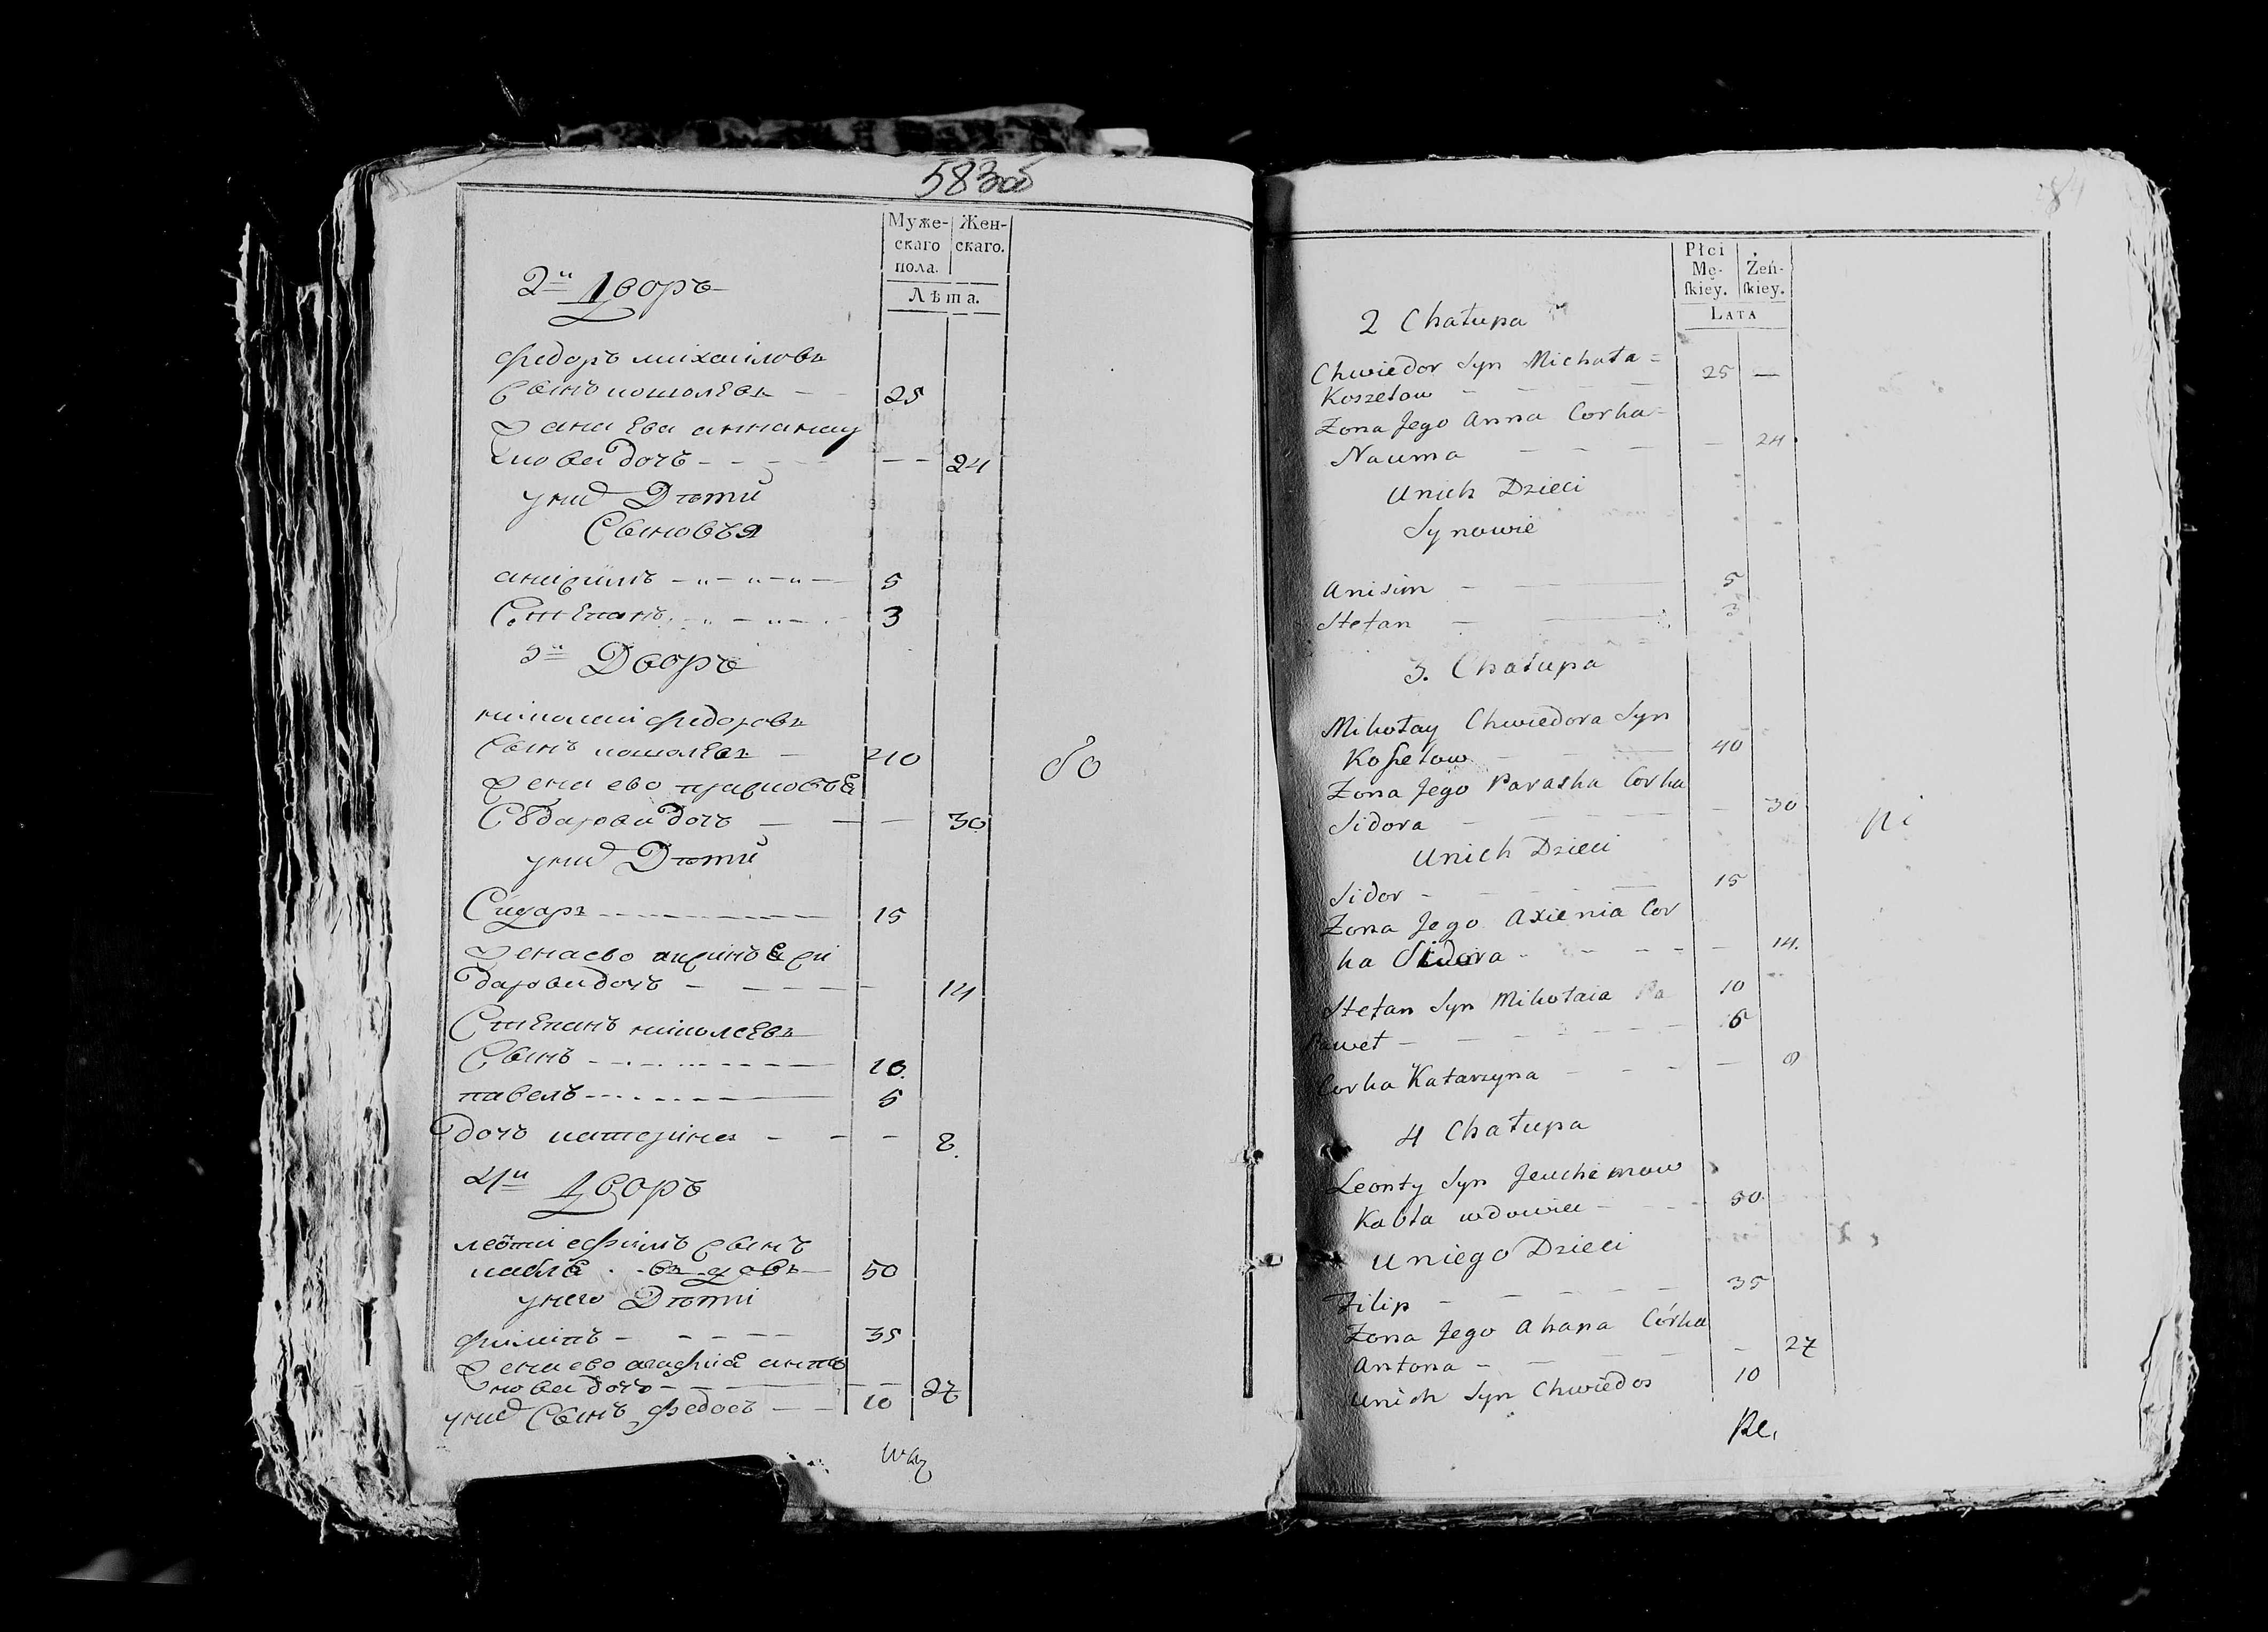 583об
Муже-
скаго
пола.
Жен-
скаго.
Лѣта.
2й Дворъ
федоръ михаиловъ
Сынъ кошалевъ 25
жана Ева анна нау
мова дочъ 24
у них Дѣти
Сыновъя
анисимъ 5
Степанъ 3
3й Дворъ
николаи федоровъ
Сынъ кошалевъ 40
жена ево
Сидарова дочъ 30
у них Дѣти
Сидаръ 15
жена ево аксинъя си
дарова дочъ 14
Степанъ николаевъ
Сынъ 10.
павелъ 5
дочъ катерина 8.
4й Дворъ
леонти ефимъ сынъ
кабла вдовъ 50
у него Дѣти
филипъ 35
жена ево агафиа анто
нова дочъ 27
у них Сынъ федосъ 10
84
Płci
Mę-
ſkiey.
Żeń-
ſkiey.
LATA
2 Chałupa
Chwiedor Syn Michała =
Koszelow 25 —
Zona Jego Anna Corka
Nauma — 24
Unich Dzieci
Synowie
Anisim 5
Stefan 3
3. Chałupa
Mikołay Chwiedora Syn
Koſzelow 40
Zona Jego Paraska Corka
Sidora — 30
Unich Dzieci
Sidor 15
Zona Jego Axienia Cor
ka Sidora — 14.
Stefan Syn Mikołaia 10
Paweł 5
Corka Katarzyna — 8
4 Chałupa
Leonty Syn Jeuchimow
Kabła wdowiec 50
Uniego Dzieci
Filip 35
Zona Jego Ahapa Córka
Antona — 27
Unich Syn Chwiedos 10